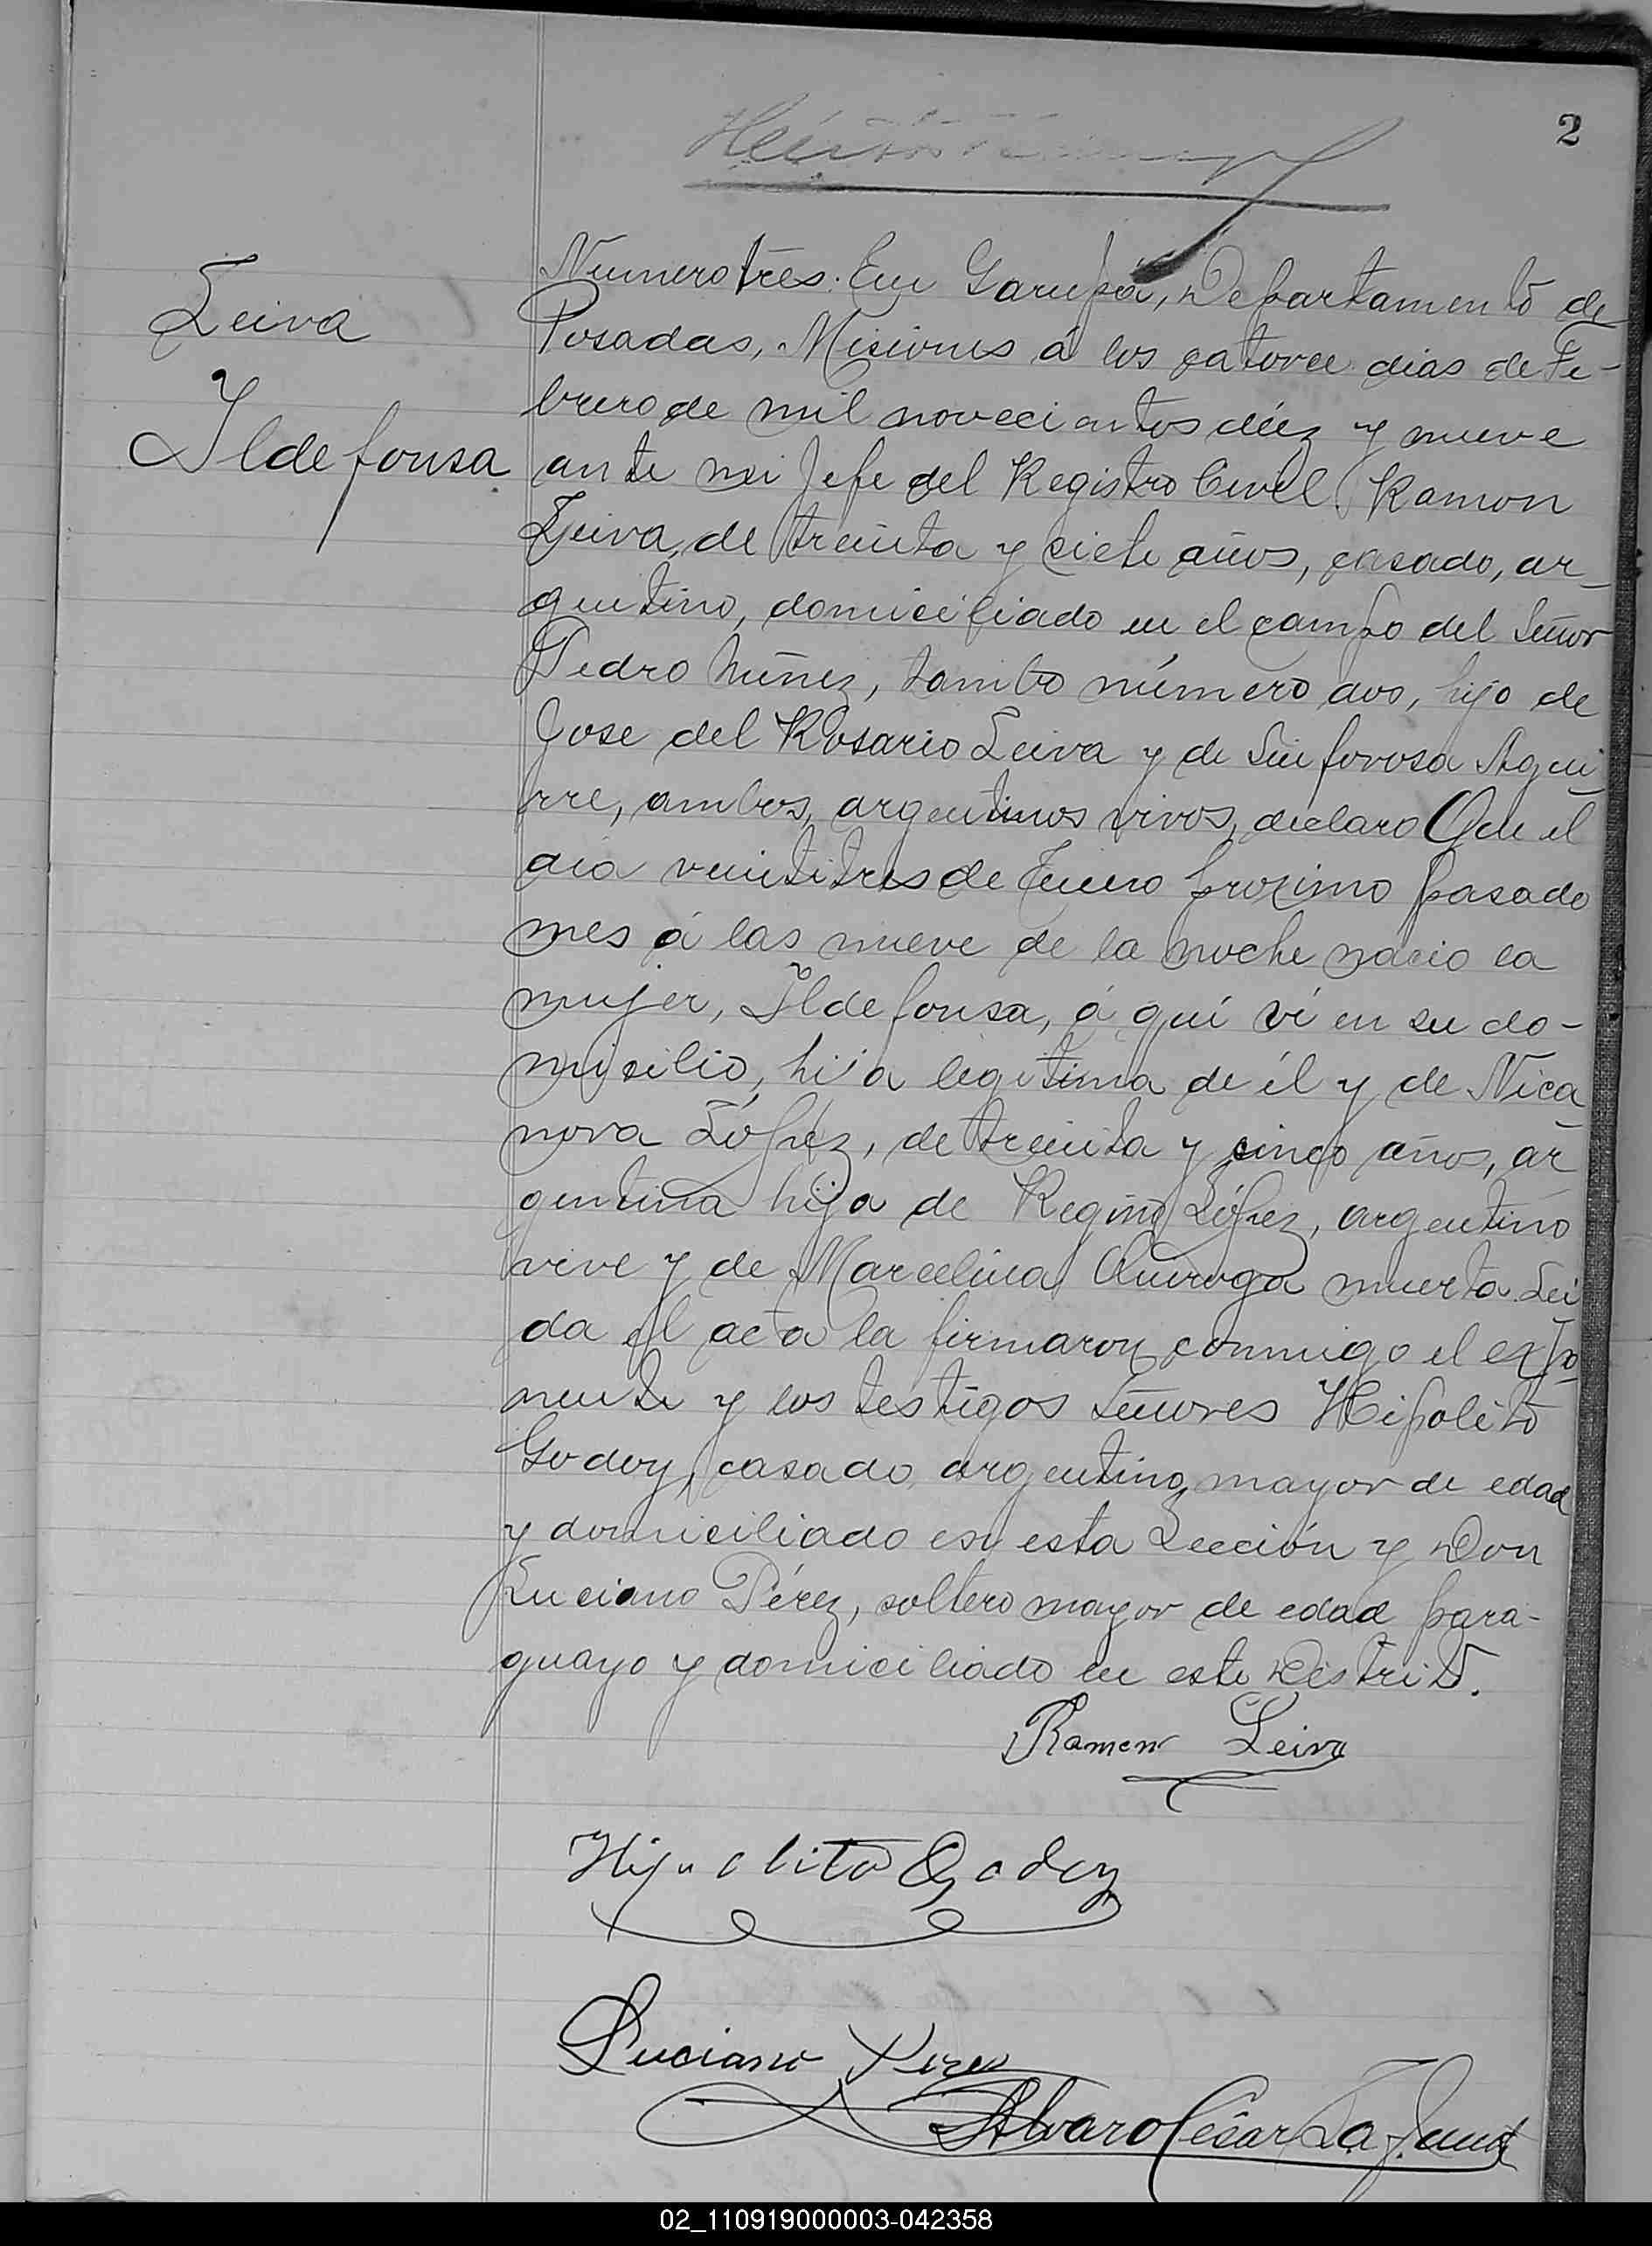 2
Leiva
Ildefonsa
Numero tres. En Garupá, Departamento de
Posadas, Misiones á los catorce dias de Fe-
brero de mil novecientos diéz y nueve
ante mi Jefe del Registro Civil Ramon
Leiva, de treinta y siete años, casado, ar-
gentino, domiciliado en el campo del Señor
Pedro Núñez, tambo número dos, hijo de
Jose del Rosario Leiva y de Sinforosa Agui-
rre, ambos, argentinos vivos, declaro Que el
dia veintitres de Enero proximo pasado
mes á las nueve de la noche nacio la
mujer, Ildefonsa, á qui ví en su do-
micilio, hija legitima de él y de Nica-
nora López, de treinta y cinco años, ar-
gentina hija de Regino López, argentino
vive y de Marcelina Quiroga muerta. Lei-
da el acta la firmaron conmigo el expo-
nente y los testigos Señores Hipolito
Godoy, casado, argentino, mayor de edad
y domiciliado en esta Sección y Don
Luciano Pérez, soltero mayor de edad para-
guayo y domiciliado en este Distrito.
Ramon Leiva
Hipolito Godoy
Luciano Perez
Alvaro César La
02_110919000003-042358